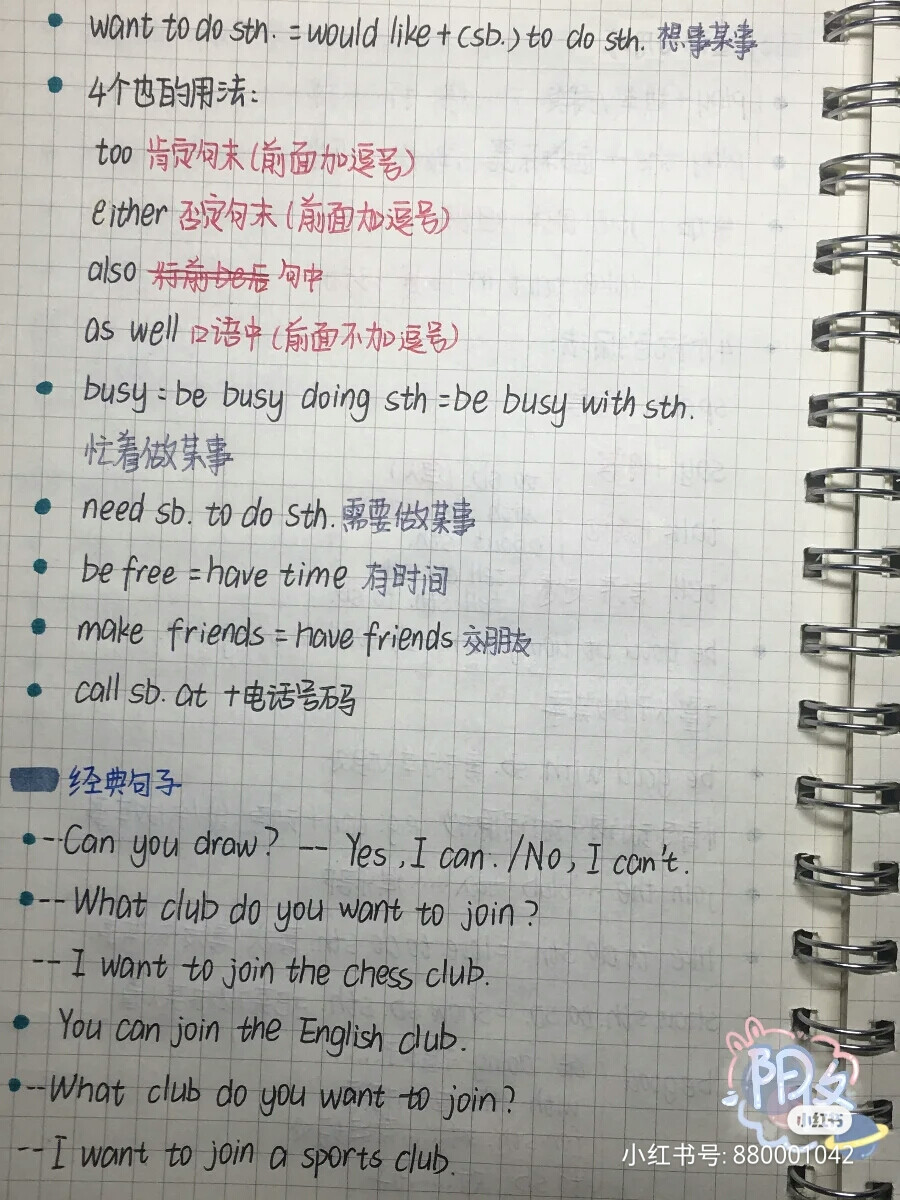 want to do sth. = would like + (sb.) to do sth. 想事某事
4个也的用法:
too 肯定句末(前面加逗号)
either 否定句末(前面加逗号)
also 行前be后 句中
as well 口语中(前面不加逗号)
busy = be busy doing sth = be busy with sth.
忙着做某事
need sb. to do sth. 需要做某事
be free = have time 有时间
make friends = have friends 交朋友
call sb. at + 电话号码
经典句子
--Can you draw? -- Yes, I can. /No, I can't.
-- What club do you want to join?
-- I want to join the chess club.
You can join the English club.
--What club do you want to join?
-- I want to join a sports club.
小红书
小红书号: 880001042